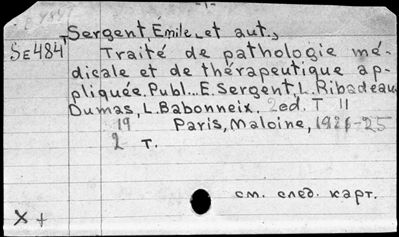 Sergent, Émile et aut.,
SE484
Traité de pathologie mé-
dicale et de thérapeutique ap-
pliquée. Publ... E. Sergent, L. Ribadeau
Dumas, L. Babonneix. 2ed. T II
19 Paris, Maloine, 1921-25
2 т.
см. след. карт.
X +